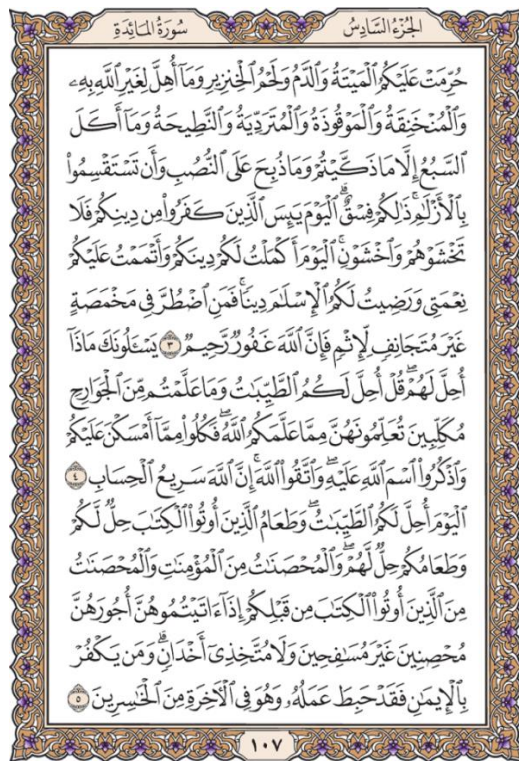 الجُزْءُ السَّادِسُ
سُورَةُ المَائِدَةِ
حُرِّمَتْ عَلَيْكُمُ ٱلْمَيْتَةُ وَٱلدَّمُ وَلَحْمُ ٱلْخِنزِيرِ وَمَآ أُهِلَّ لِغَيْرِ ٱللَّهِ بِهِۦ
وَٱلْمُنْخَنِقَةُ وَٱلْمَوْقُوذَةُ وَٱلْمُتَرَدِّيَةُ وَٱلنَّطِيحَةُ وَمَآ أَكَلَ
ٱلسَّبُعُ إِلَّا مَا ذَكَّيْتُمْ وَمَا ذُبِحَ عَلَى ٱلنُّصُبِ وَأَن تَسْتَقْسِمُوا۟
بِٱلْأَزْلَٰمِ ۚ ذَٰلِكُمْ فِسْقٌ ۗ ٱلْيَوْمَ يَئِسَ ٱلَّذِينَ كَفَرُوا۟ مِن دِينِكُمْ فَلَا
تَخْشَوْهُمْ وَٱخْشَوْنِ ۚ ٱلْيَوْمَ أَكْمَلْتُ لَكُمْ دِينَكُمْ وَأَتْمَمْتُ عَلَيْكُمْ
نِعْمَتِى وَرَضِيتُ لَكُمُ ٱلْإِسْلَٰمَ دِينًا ۚ فَمَنِ ٱضْطُرَّ فِى مَخْمَصَةٍ
غَيْرَ مُتَجَانِفٍ لِّإِثْمٍ فَإِنَّ ٱللَّهَ غَفُورٌ رَّحِيمٌ ٣ يَسْـَٔلُونَكَ مَاذَآ
أُحِلَّ لَهُمْ ۖ قُلْ أُحِلَّ لَكُمُ ٱلطَّيِّبَٰتُ وَمَا عَلَّمْتُم مِّنَ ٱلْجَوَارِحِ
مُكَلِّبِينَ تُعَلِّمُونَهُنَّ مِمَّا عَلَّمَكُمُ ٱللَّهُ ۖ فَكُلُوا۟ مِمَّآ أَمْسَكْنَ عَلَيْكُمْ
وَٱذْكُرُوا۟ ٱسْمَ ٱللَّهِ عَلَيْهِ ۖ وَٱتَّقُوا۟ ٱللَّهَ ۚ إِنَّ ٱللَّهَ سَرِيعُ ٱلْحِسَابِ ٤
ٱلْيَوْمَ أُحِلَّ لَكُمُ ٱلطَّيِّبَٰتُ ۖ وَطَعَامُ ٱلَّذِينَ أُوتُوا۟ ٱلْكِتَٰبَ حِلٌّ لَّكُمْ
وَطَعَامُكُمْ حِلٌّ لَّهُمْ ۖ وَٱلْمُحْصَنَٰتُ مِنَ ٱلْمُؤْمِنَٰتِ وَٱلْمُحْصَنَٰتُ
مِنَ ٱلَّذِينَ أُوتُوا۟ ٱلْكِتَٰبَ مِن قَبْلِكُمْ إِذَآ ءَاتَيْتُمُوهُنَّ أُجُورَهُنَّ
مُحْصِنِينَ غَيْرَ مُسَٰفِحِينَ وَلَا مُتَّخِذِىٓ أَخْدَانٍ ۗ وَمَن يَكْفُرْ
بِٱلْإِيمَٰنِ فَقَدْ حَبِطَ عَمَلُهُۥ وَهُوَ فِى ٱلْـَٔاخِرَةِ مِنَ ٱلْخَٰسِرِينَ ٥
١٠٧